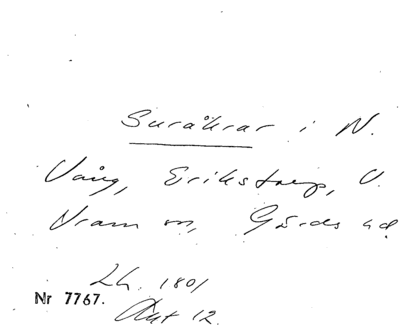 Suråkrar i N.
Vång, Erikstorp, V.
Vram sn, Gärds hd.
Lh. 1801
Nr 7767.
Akt 12.